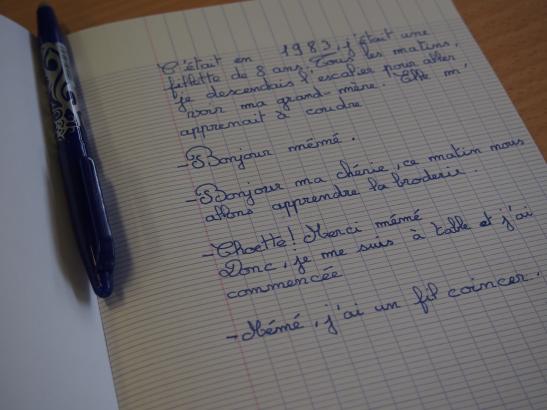 C'était en 1983, j'était une
fillette de 8 ans. Tous les matins,
je descendais l'escalier pour aller
voir ma grand-mère. Elle m'
apprenait à coudre
- Bonjour mémé.
- Bonjour ma chérie, ce matin nous
allons apprendre la broderie.
- Chouette! Merci mémé
Donc, je me suis à table et j'ai
commencée
- Mémé, j'ai un fil coincer.